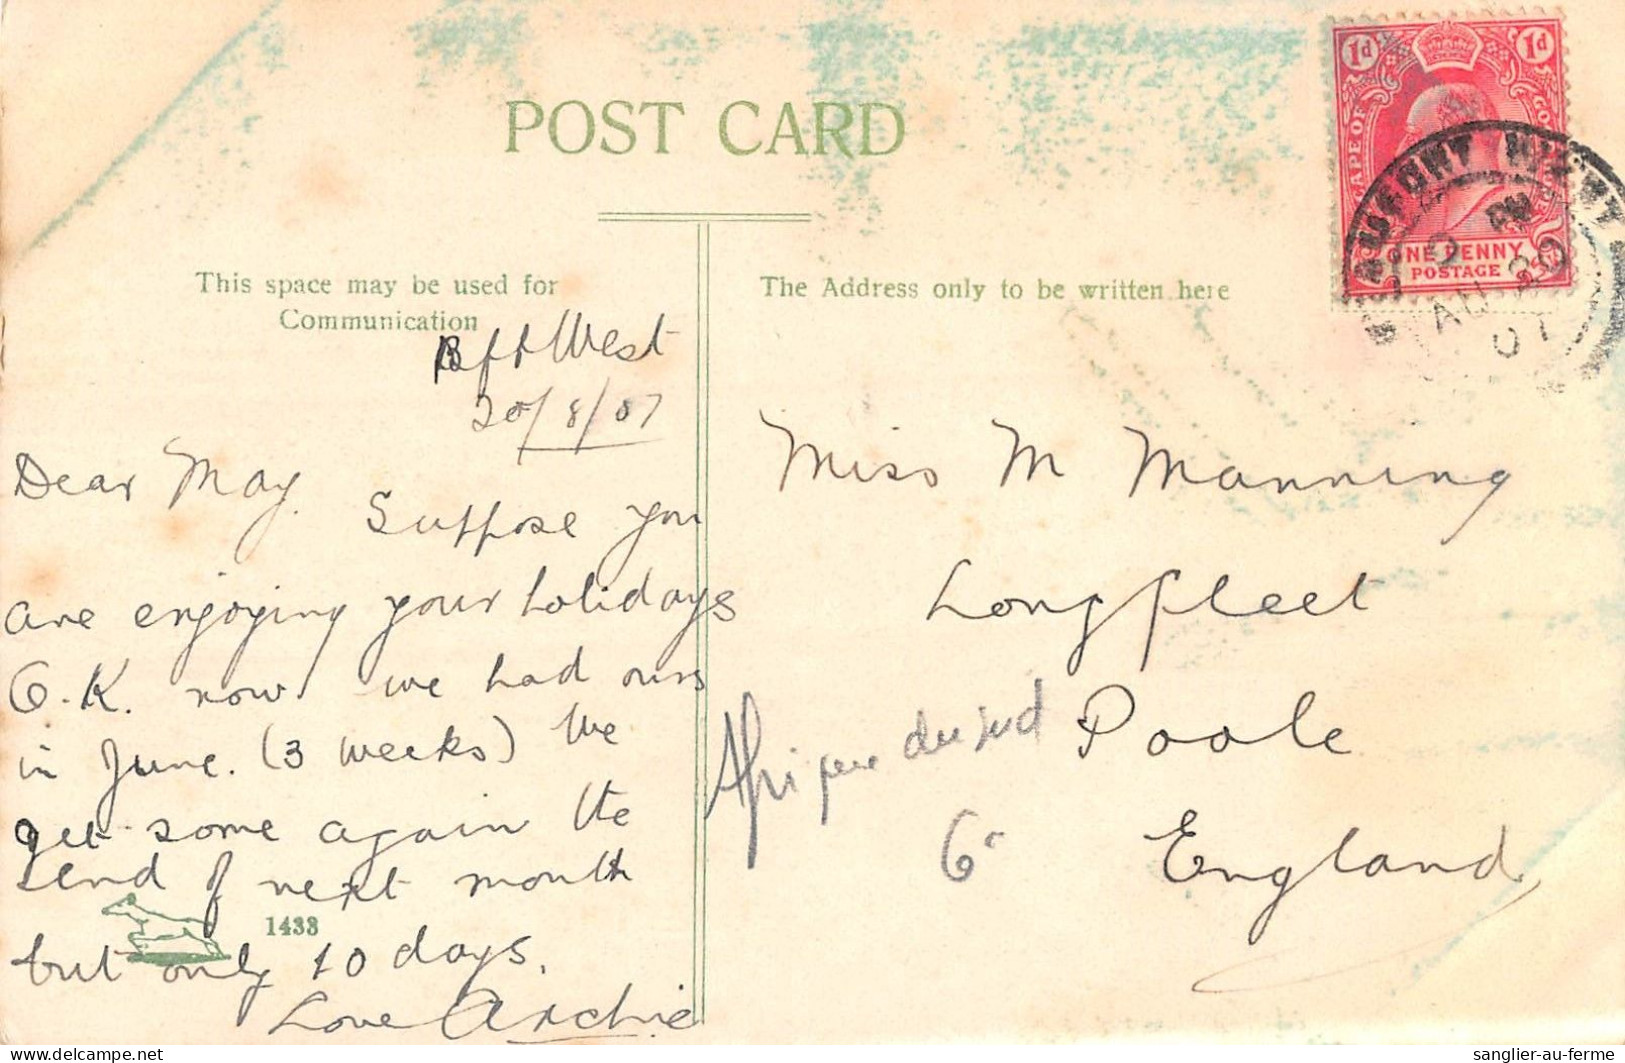 POST CARD
This space may be used for
Communication
The Address only to be written here
1d 1d
CAPE OF GOOD HOPE
ONE PENNY
POSTAGE
BEAUFORT WEST
AM
AU 20
07
Bft West
20/8/07
Dear May.
Suppose you
are enjoying your holidays
O.K. now we had ours
in June. (3 weeks) We
get some again the
end of next month
but only 10 days.
Love Archie
1433
Miss M Manning
Longfleet
Poole
England
Afrique du sud
6
sanglier-au-ferme